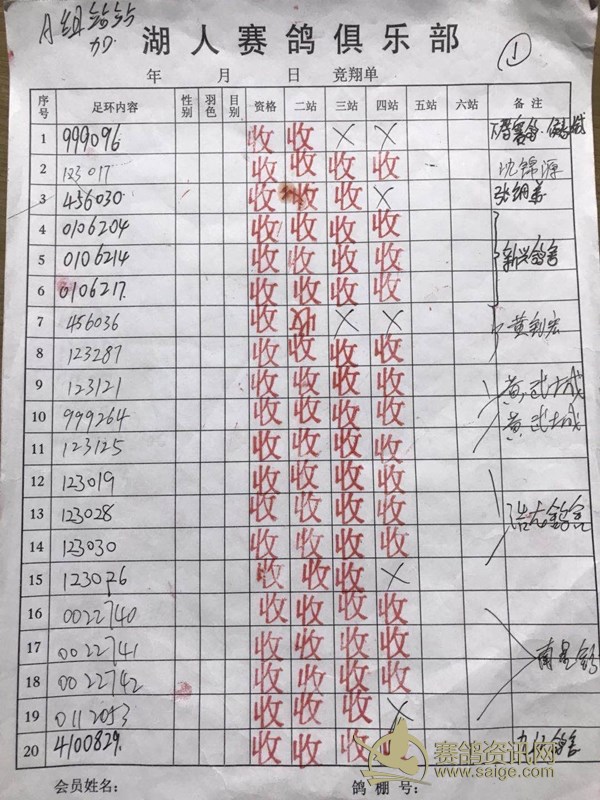 A组站站
加
①
湖人赛鸽俱乐部
年 月 日 竞翔单
序号 足环内容 性别 羽色 目别 资格 二站 三站 四站 五站 六站 备注
1 999096 收 收 × ×
2 123017 收 收 收 收 沈锦源
3 456030 收 收 收 ×
4 0106204 收 收 收 收
5 0106214 收 收 收 收 新兴鸽舍
6 0106217 收 收 收 收
7 456036 收 收 × × 黄钊宏
8 123287 收 收 收 收
9 123121 收 收 收 收 黄武城
10 999264 收 收 收 收 黄武城
11 123125 收 收 收 收
12 123019 收 收 收 收
13 123028 收 收 收 收 浩龙鸽舍
14 123030 收 收 收 收
15 123026 收 收 收 ×
16 0022740 收 收 收 收
17 0022741 收 收 收 收 南星鸽
18 0022742 收 收 收 收
19 0112053 收 收 收 ×
20 4100829 收 收 收 收 鸽舍
会员姓名： 鸽棚号：
赛鸽资讯网
www.saige.com